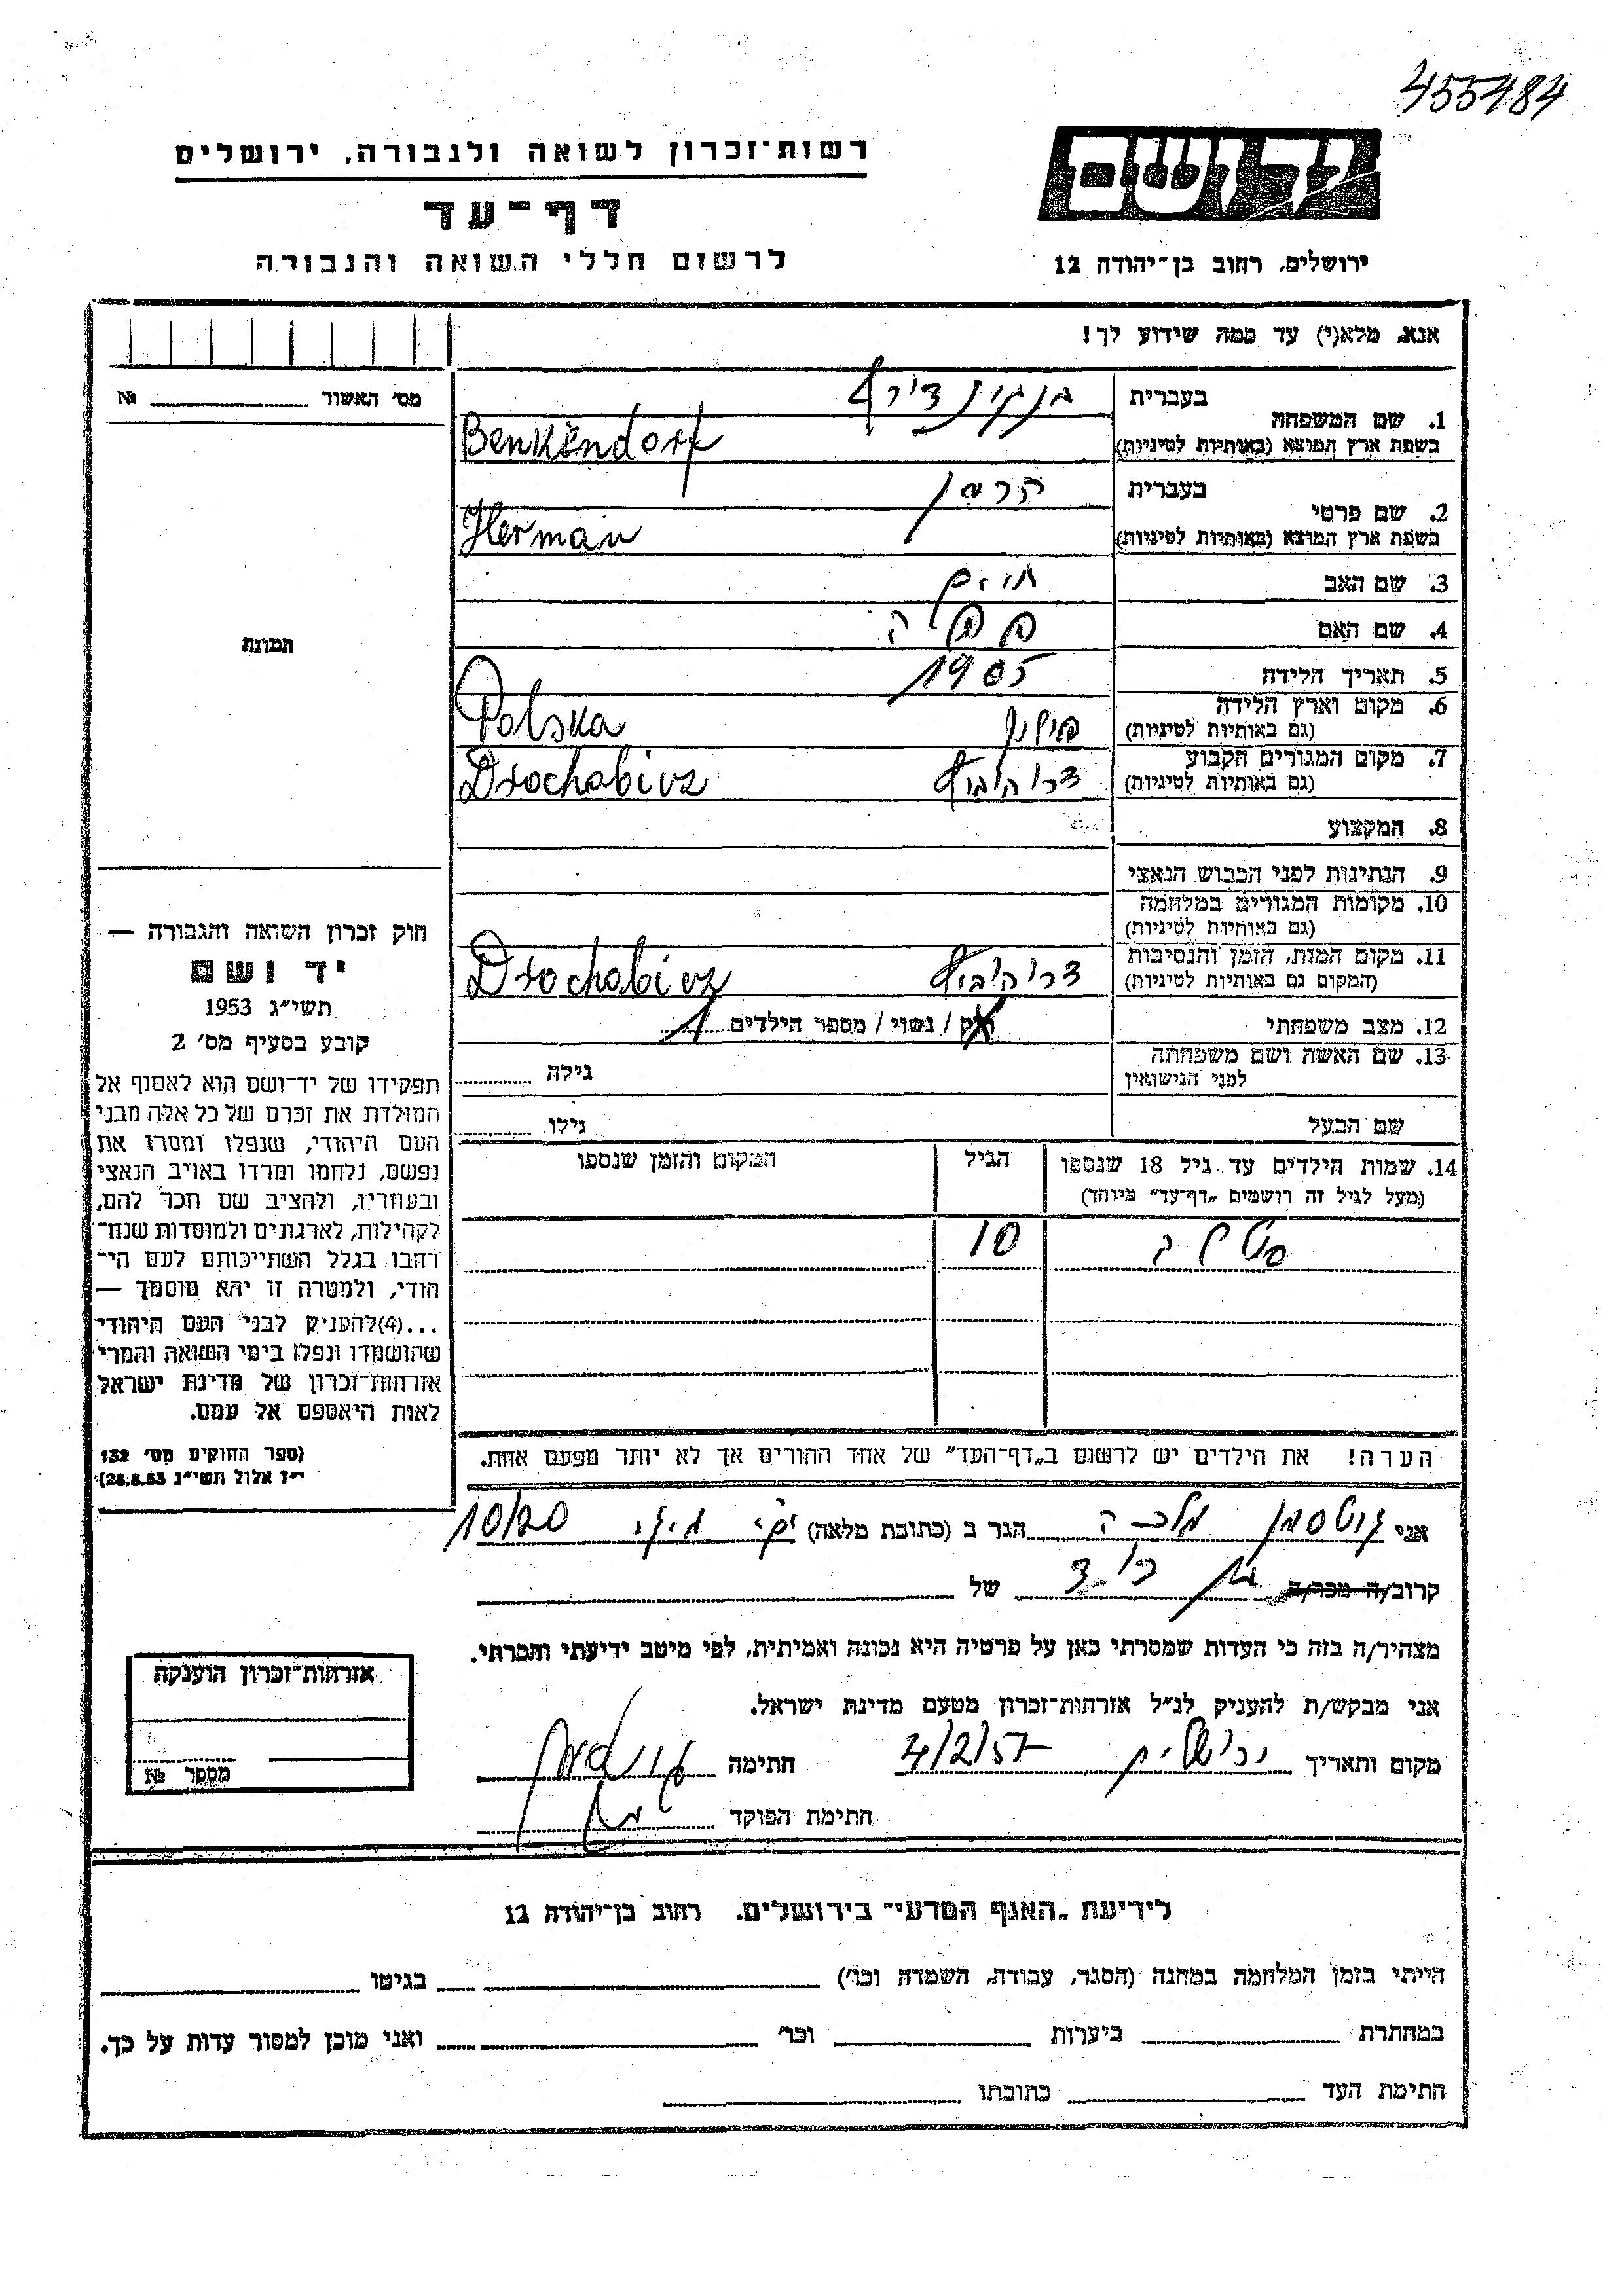 455484
רשות־זכרון לשואה ולגבורה, ירושלים
דף־עד
לרשום חללי השואה והגבורה
יד ושם
ירושלים, רחוב בן־יהודה 12
אנא, מלא(י) עד כמה שידוע לך!
מס' האשור №
1. שם המשפחה
בעברית
בשפת ארץ המוצא (באותיות לטיניות) Benkendorf
2. שם פרטי
בעברית הרמן
בשפת ארץ המוצא (באותיות לטיניות) Herman
3. שם האב חיים
4. שם האם
5. תאריך הלידה 1905
6. מקום וארץ הלידה
(גם באותיות לטיניות) פולין Polska
7. מקום המגורים הקבוע
(גם באותיות לטיניות) דרוהוביץ Drochobicz
8. המקצוע
9. הנתינות לפני הכבוש הנאצי
10. מקומות המגורים במלחמה
(גם באותיות לטיניות)
11. מקום המות, הזמן והנסיבות
(המקום גם באותיות לטיניות) דרוהוביץ Drochobicz
12. מצב משפחתי רוק / נשוי / מספר הילדים 1
13. שם האשה ושם משפחתה
לפני הנישואין
גילה
שם הבעל
גילו
14. שמות הילדים עד גיל 18 שנספו
(מעל לגיל זה רושמים „דף־עד" מיוחד)
הגיל
המקום והזמן שנספו
סטלה 10
הערה! את הילדים יש לרשום ב„דף־העד" של אחד ההורים אך לא יותר מפעם אחת.
תמונה
חוק זכרון השואה והגבורה —
יד ושם
תשי"ג 1953
קובע בסעיף מס' 2
תפקידו של יד־ושם הוא לאסוף אל
המולדת את זכרם של כל אלה מבני
העם היהודי, שנפלו ומסרו את
נפשם, נלחמו ומרדו באויב הנאצי
ובעוזריו, ולהציב שם וזכר להם,
לקהילות, לארגונים ולמוסדות שנח־
רחבו בגלל השתייכותם לעם הי־
הודי, ולמטרה זו יהא מוסמך —
...(4)להעניק לבני העם היהודי
שהושמדו ונפלו בימי השואה והמרי
אזרחות־זכרון של מדינת ישראל
לאות היאספם אל עמם.
(ספר החוקים מס' 132
י"ז אלול תשי"ג 28.8.53)
אני גוטסמן מלכה הגר ב (כתובת מלאה) 10/20
קרוב/ה מכר/ה בן דוד של
מצהיר/ה בזה כי העדות שמסרתי כאן על פרטיה היא נכונה ואמיתית, לפי מיטב ידיעתי והכרתי.
אני מבקש/ת להעניק לנ"ל אזרחות־זכרון מטעם מדינת ישראל.
מקום ותאריך ירושלים 4/2/57 חתימה
חתימת הפוקד
אזרחות־זכרון הוענקה
מספר №
לידיעת „האגף המדעי" בירושלים. רחוב בן־יהודה 12
הייתי בזמן המלחמה במחנה (הסגר, עבודה, השמדה וכר') בגיטו
במחתרת ביערות וכר' ואני מוכן למסור עדות על כך.
חתימת העד כתובתו